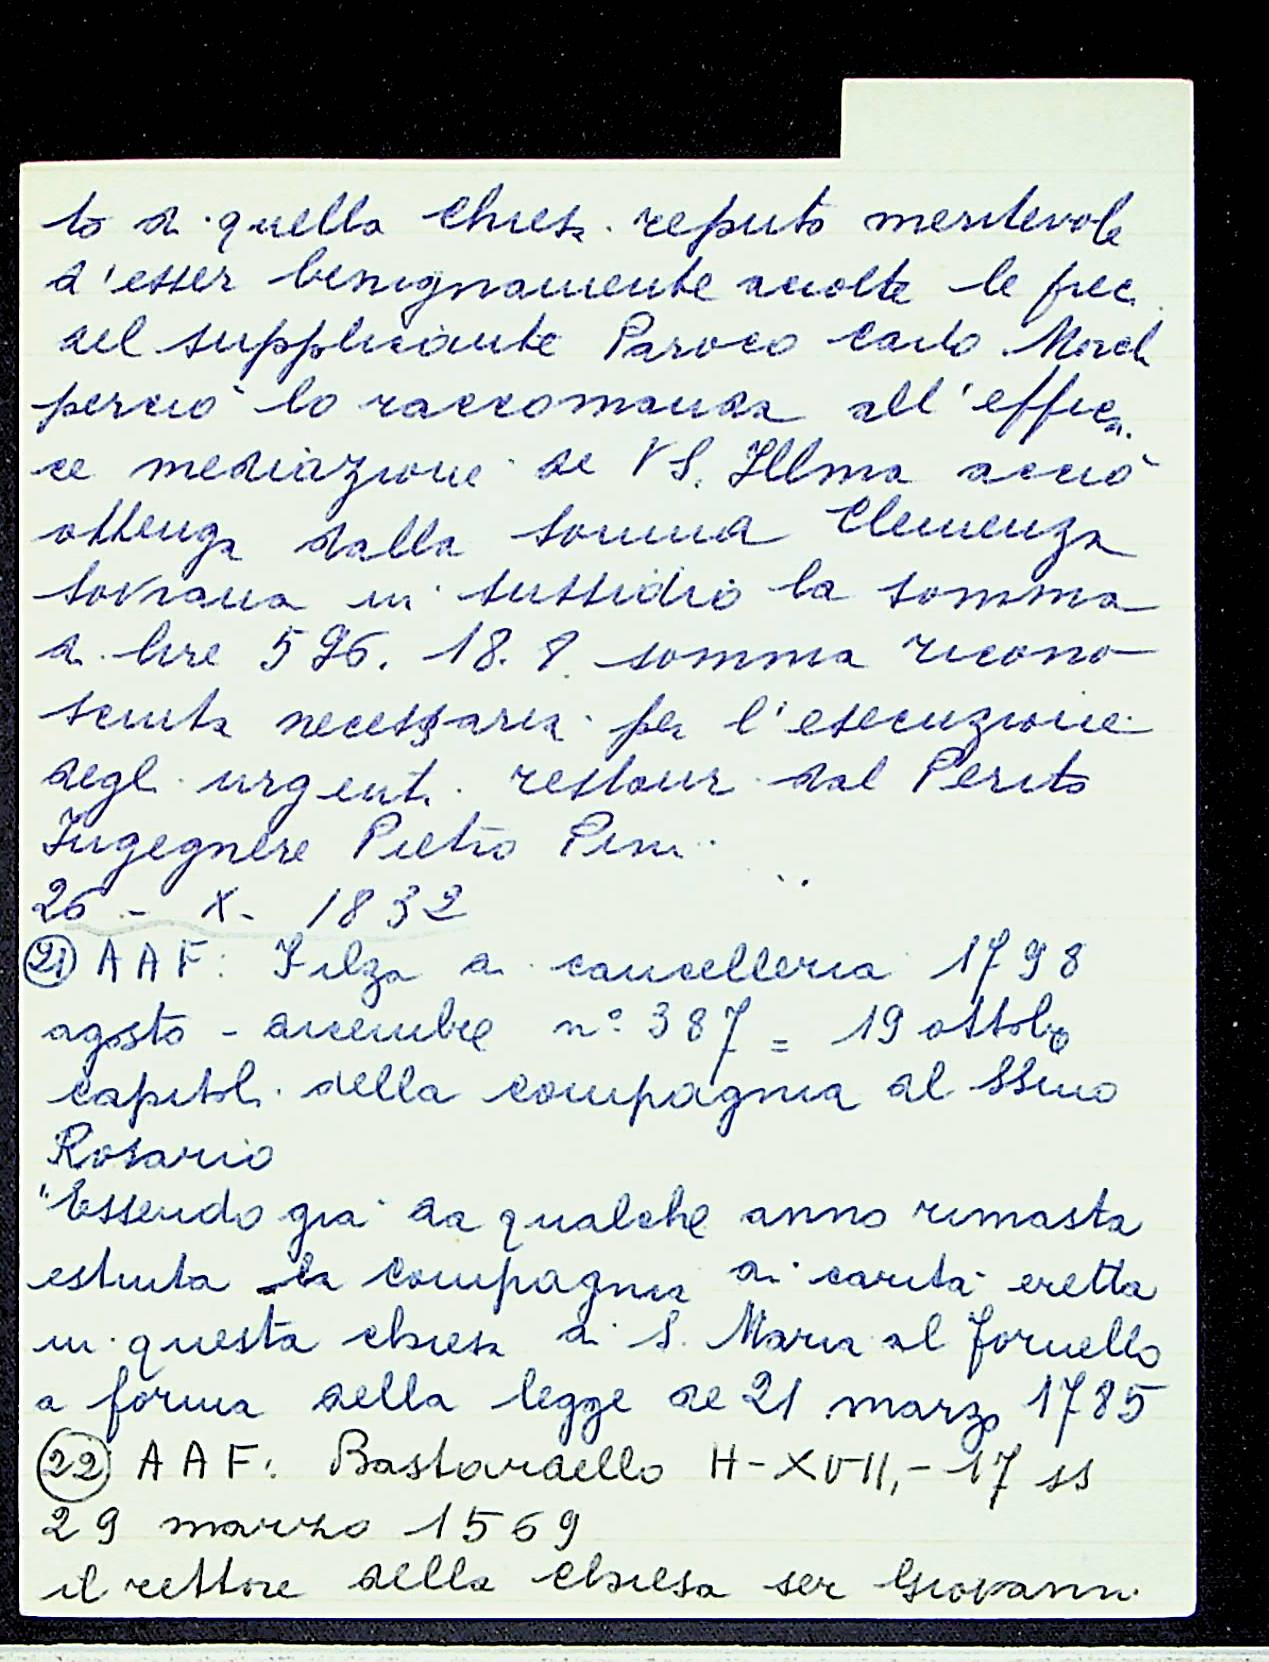 to di quella Chiesa reputo meritevole
d'esser benignamente accolte le prec.
del supplicante Paroco Carlo
perciò lo raccomanda all'effica
ce mediazione de VS. Illma acciò
ottenga dalla somma Clemenza
sovrana in sussidio la somma
di lire 596. 18. 8. somma ricono
sciuta necessaria per l'esecuzione
degli urgenti restauri dal Perito
Ingegnere Pietro Pini
26 - X - 1832
(21) AAF: Filza di cancelleria 1798
agosto - dicembre n° 387 = 19 ottobre
capitoli della compagnia del SSmo
Rosario
"Essendo già da qualche anno rimasta
estinta la Compagnia di carità eretta
in questa chiesa di S. Maria al fornello
a forma della legge de 21 marzo 1785
(22) AAF: Bastardello H-XVII,-17 ss
29 marzo 1569
il rettore della chiesa ser Giovanni